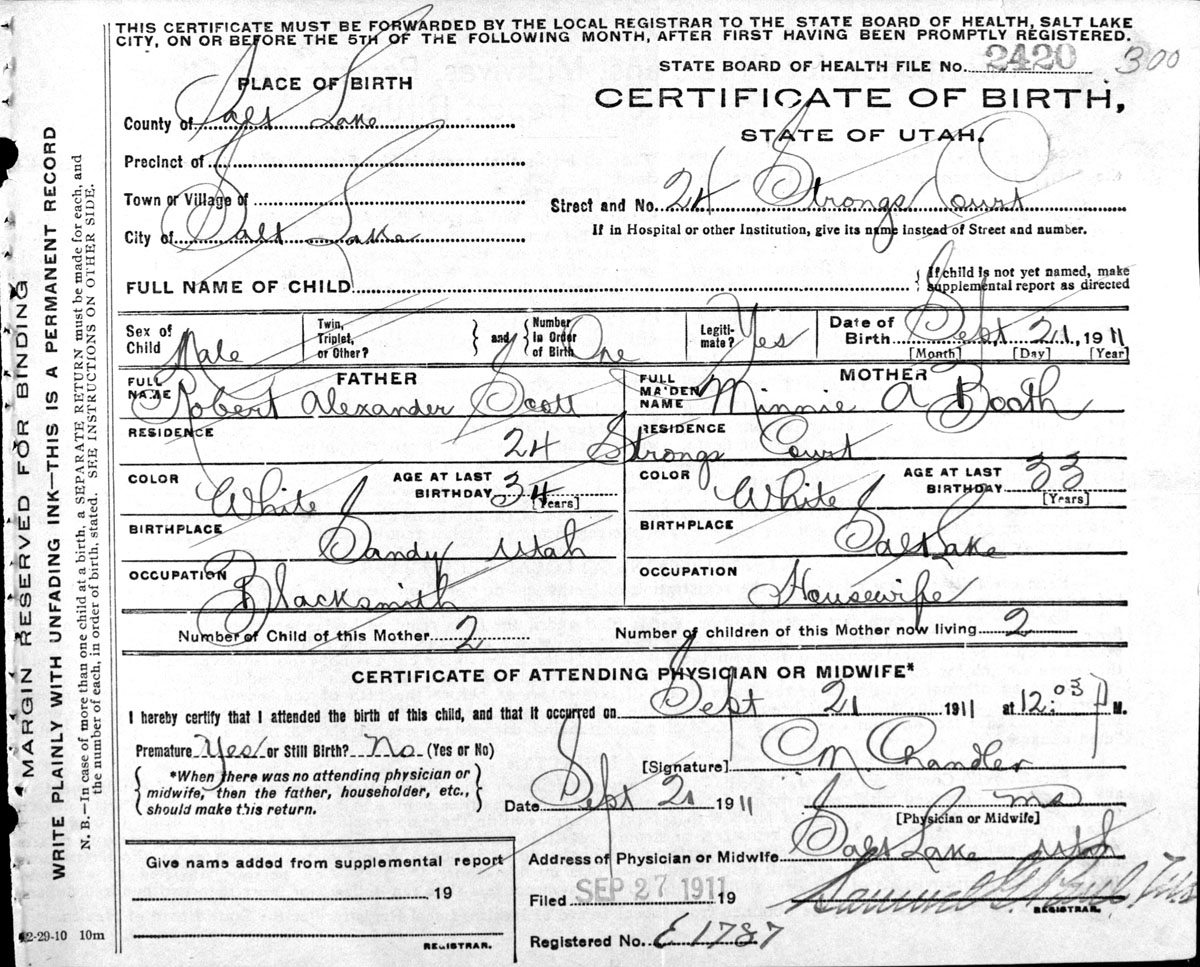 THIS CERTIFICATE MUST BE FORWARDED BY THE LOCAL REGISTRAR TO THE STATE BOARD OF HEALTH, SALT LAKE
CITY, ON OR BEFORE THE 5TH OF THE FOLLOWING MONTH, AFTER FIRST HAVING BEEN PROMPTLY REGISTERED.
STATE BOARD OF HEALTH FILE No. 2420 300
PLACE OF BIRTH
CERTIFICATE OF BIRTH,
STATE OF UTAH.
County of Salt Lake
Precinct of
Town or Village of
Street and No. 24 Strongs Court
City of Salt Lake
If in Hospital or other Institution, give its name instead of Street and number.
FULL NAME OF CHILD { If child is not yet named, make
supplemental report as directed
Sex of Child Male
Twin, Triplet, or Other? } and { Number in Order of Birth One
Legiti-mate? Yes
Date of Birth Sept 21, 1911
[Month] [Day] [Year]
FATHER
FULL NAME Robert Alexander Scott
MOTHER
FULL MAIDEN NAME Minnie A Booth
RESIDENCE RESIDENCE
24 Strongs Court
COLOR White AGE AT LAST BIRTHDAY 34 [Years]
COLOR White AGE AT LAST BIRTHDAY 33 [Years]
BIRTHPLACE Sandy Utah
BIRTHPLACE Salt Lake
OCCUPATION Blacksmith
OCCUPATION Housewife
Number of Child of this Mother 2 Number of children of this Mother now living 2
CERTIFICATE OF ATTENDING PHYSICIAN OR MIDWIFE*
I hereby certify that I attended the birth of this child, and that it occurred on Sept 21 1911 at 12:03 P M.
Premature Yes or Still Birth? No (Yes or No)
[Signature] C M Chandler
{ *When there was no attending physician or
midwife, then the father, householder, etc.,
should make this return. }
Date Sept 21 1911
[Physician or Midwife]
Address of Physician or Midwife Salt Lake Utah
Give name added from supplemental report
19
REGISTRAR.
Filed SEP 27 1911 19
REGISTRAR.
Registered No. E 1787
2-29-10 10m
MARGIN RESERVED FOR BINDING
WRITE PLAINLY WITH UNFADING INK—THIS IS A PERMANENT RECORD
N. B.—In case of more than one child at a birth, a SEPARATE RETURN must be made for each, and
the number of each, in order of birth, stated. SEE INSTRUCTIONS ON OTHER SIDE.